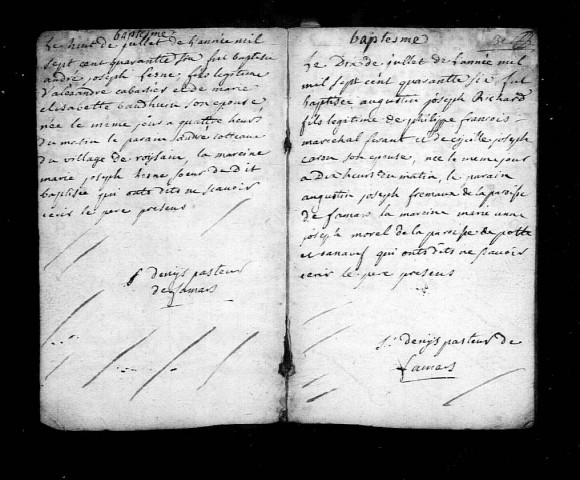 baptesme
Le huit de juillet de l'année mil
sept cent quarante six fut baptisé
andré joseph hesne, fils legitime
d'alexandre cabassier et de marie
elisabette bauduin son epouse,
née le meme jour a quattre heurs
du matin le parain andré cotteau
du village de la mareine
marie joseph hesne soeur de dit
baptisée qui ont dits ne scavoir
ecrir le pere present
S denys pasteur
de famars
baptesme
Le Dix de juillet de l'année mil
mil sept cent quarante six fut
baptisee augustin joseph Richard
fils legitime de philippe francois
marechal ferant et de joseph
son epouse, née le meme jour
a Dix heurs du matin, le parain
augustin joseph fremaux de la paroisse
de famars la mareine marie anne
joseph morel de la paroisse de
et qui ont dits ne scavoir
ecrir le pere present
S. denys pasteur de
famars